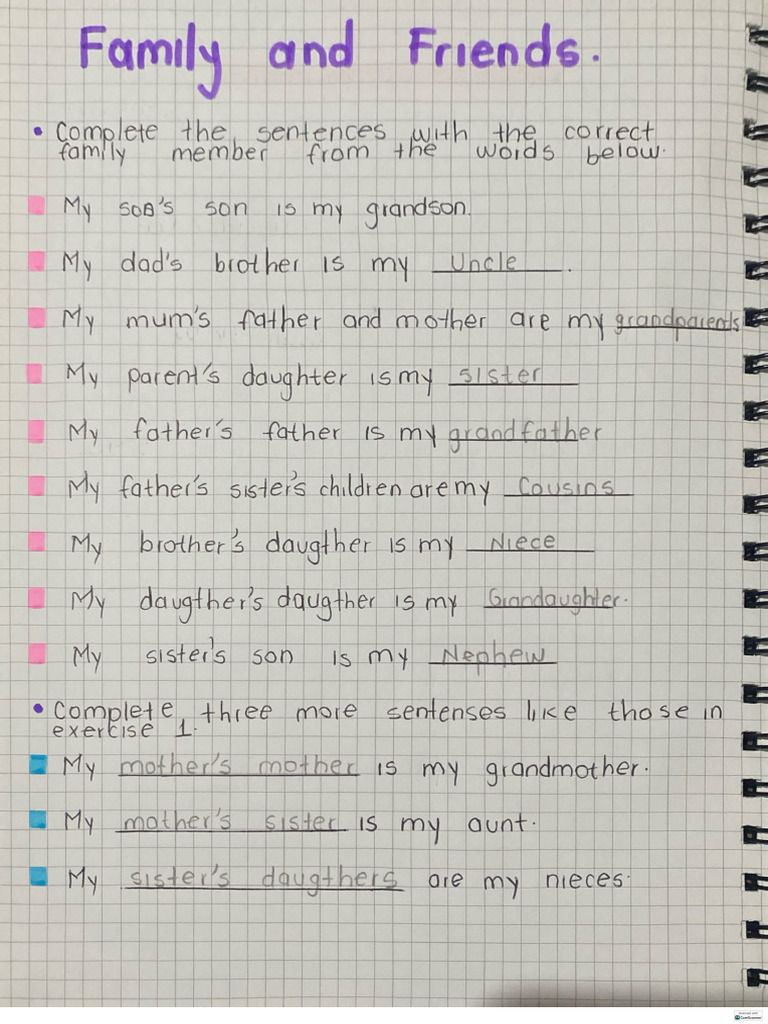 Family and Friends.
• Complete the sentences with the correct
family member from the words below.
My son's son is my grandson.
My dad's brother is my Uncle.
My mum's father and mother are my grandparents
My parent's daughter is my sister
My father's father is my grandfather
My father's sister's children are my Cousins
My brother's daugther is my Niece
My daugther's daugther is my Grandaughter.
My sister's son is my Nephew
• Complete three more sentences like those in
exercise 1.
My mother's mother is my grandmother.
My mother's sister is my aunt.
My sister's daugthers are my nieces.
Scanned with
CamScanner